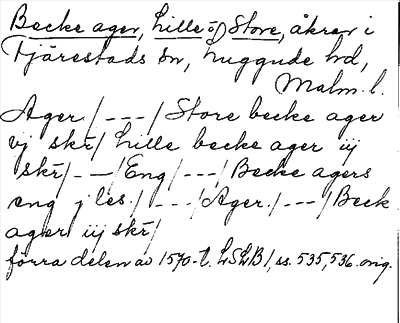 Becke ager, Lille o Store, åkrar i
Tjärestads sn, Luggude hd,
Malm. l.
Ager / - - - / Store becke ager
vj skr / Lille becke ager iij
skr / - - / Eng / - - - / Becke agers
eng j les. / - - - / Ager. / - - - / Beck
ager iij skr /
förra delen av 1570-t. LSLB 1, ss. 535, 536. orig.